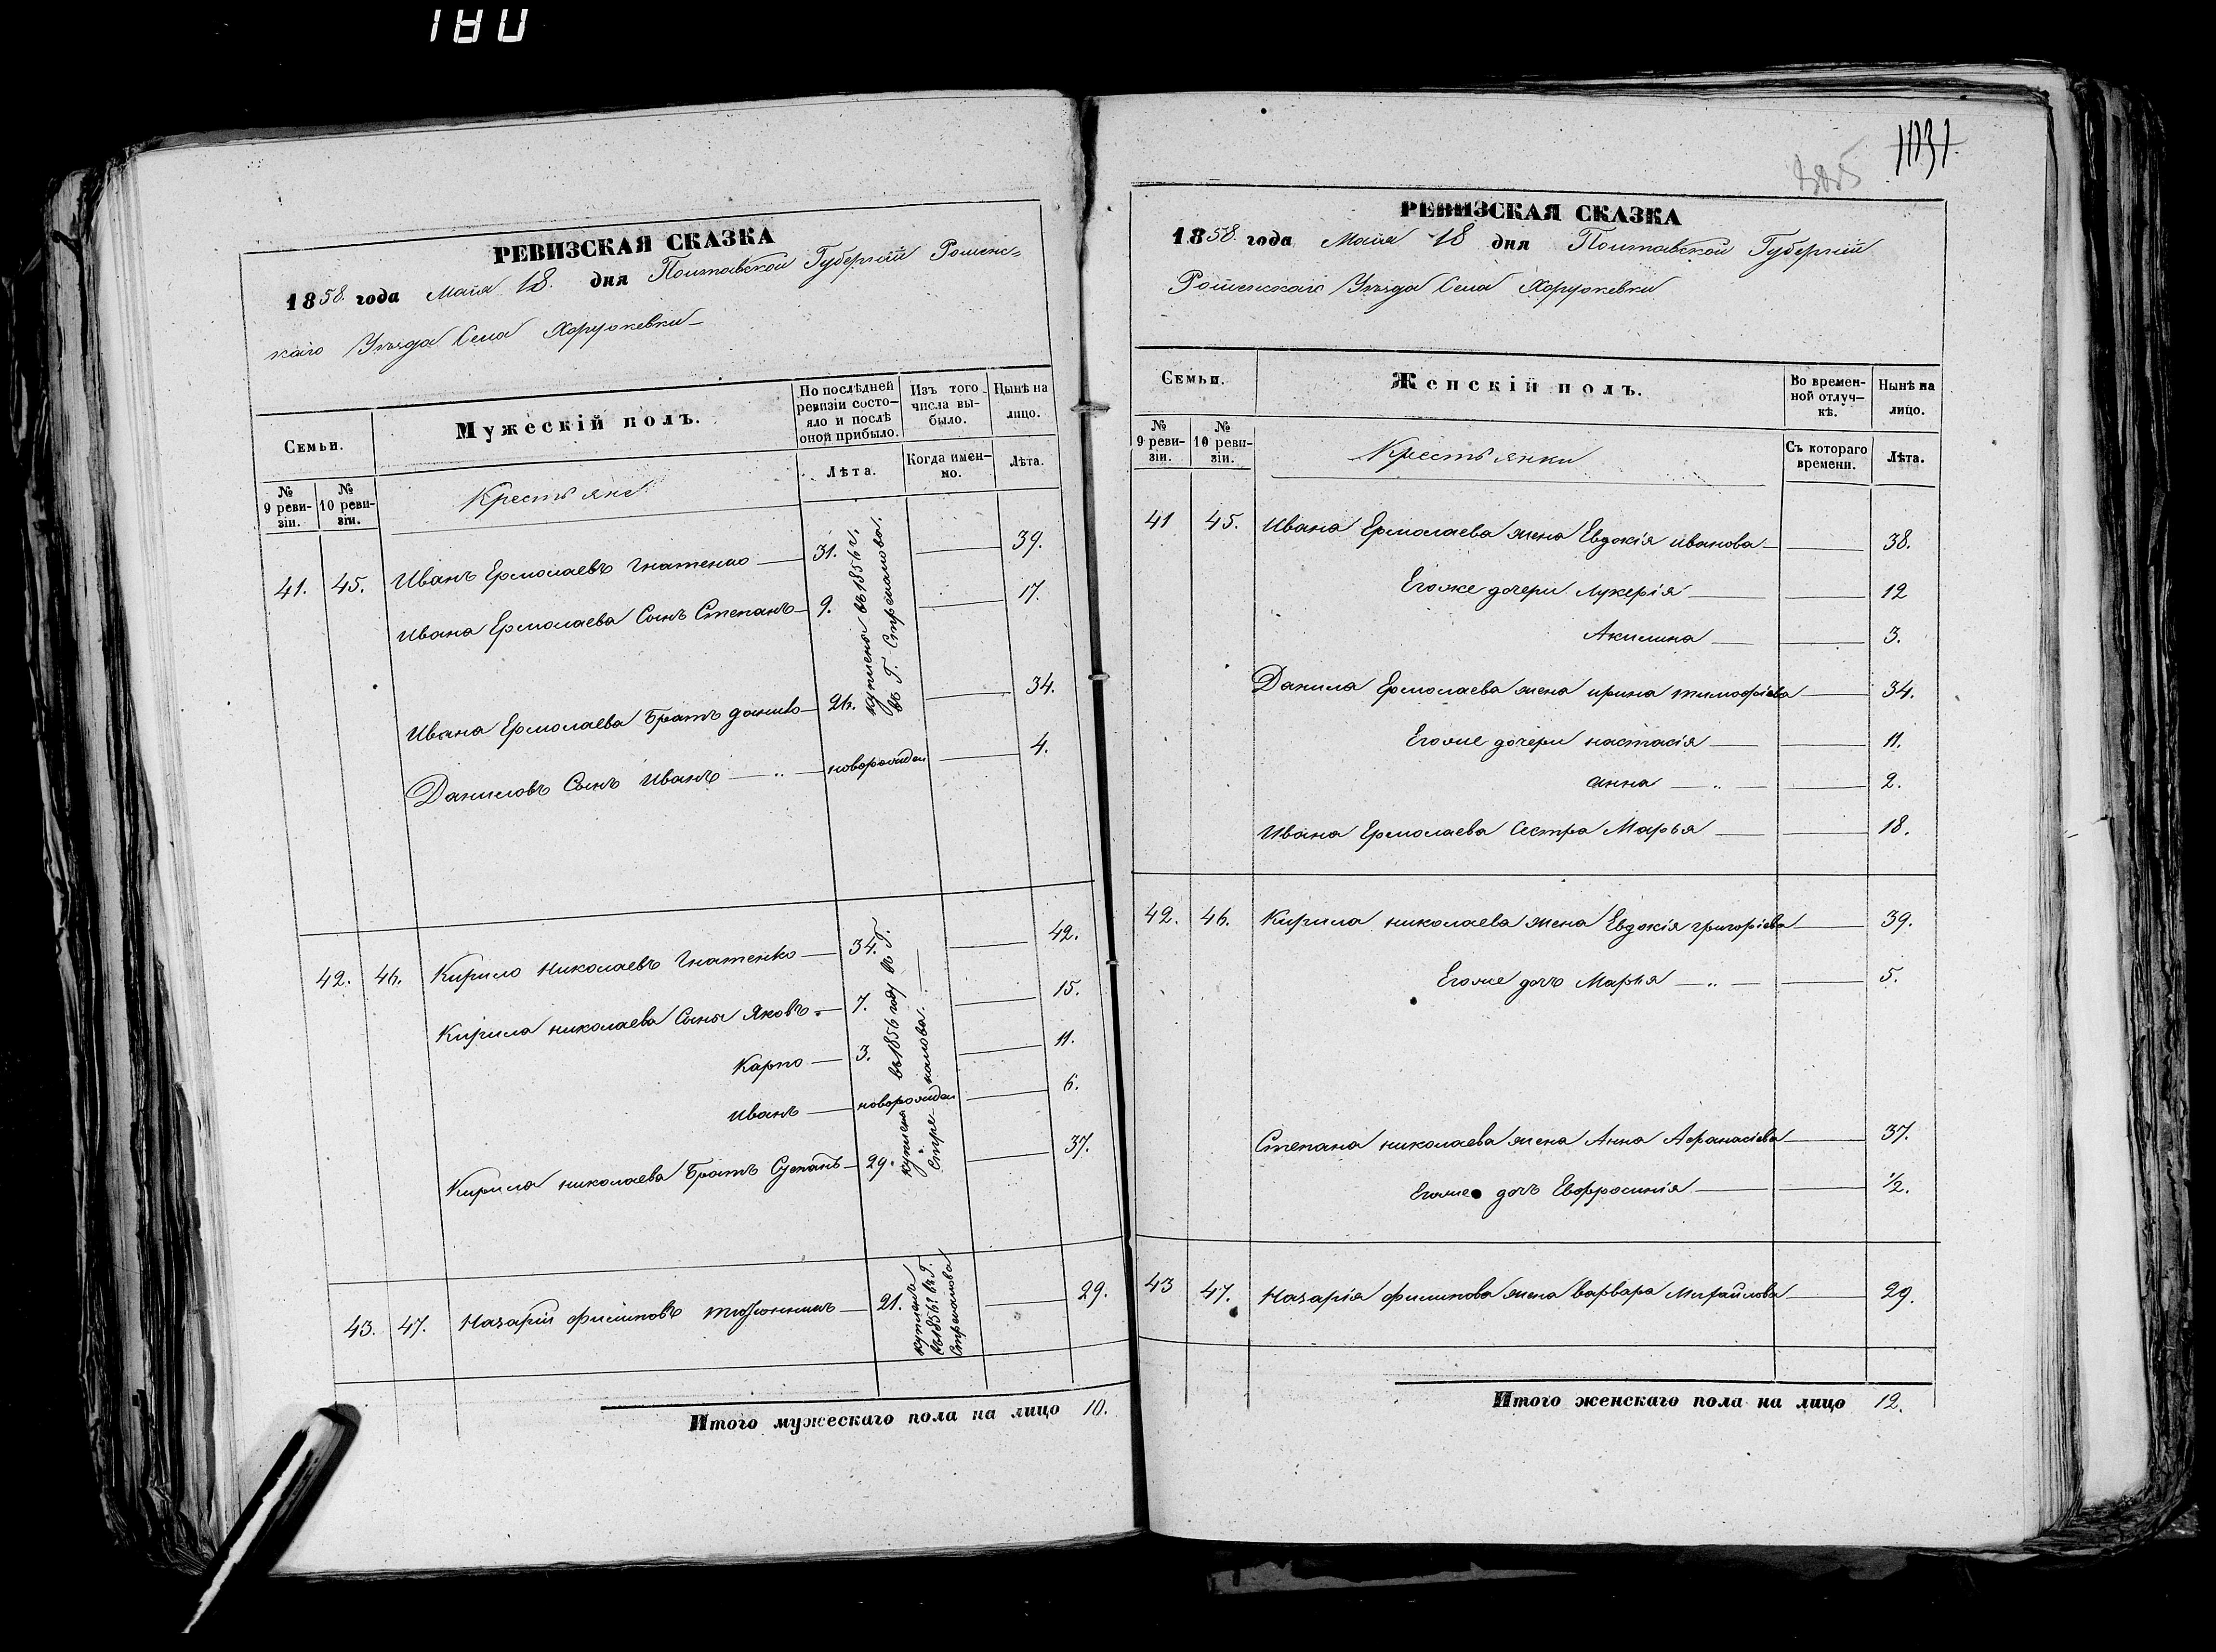 180
РЕВИЗСКАЯ СКАЗКА
1858. года Мая 18. дня Полтавской Губерніи Роменс=
каго Уѣзда Села Хоружевки
Семьи.
Мужескій полъ.
По послѣдней ревизіи состо-
яло и послѣ оной прибыло.
Изъ того числа вы-
было.
Нынѣ на лицо.
№ 9 реви-
зіи.
№ 10 реви-
зіи.
Крестьяне
Лѣта.
Когда имен-
но.
Лѣта.
41. 45. Иванъ Ермолаевъ Гнатенко 31. 39.
Ивана Ермолаева Сынъ Степанъ 9. 17.
Ивана Ермолаева Братъ Данило 26. 34.
Даниловъ Сынъ Иванъ новорожден 4.
куплены въ 1856 г.
въ Г. Стремоухова.
42. 46. Кирило Николаевъ Гнатенко 34. 42.
Кирила Николаева Сыны Яковъ 7. 15.
Карпо 3. 11.
Иванъ новорожден 6.
Кирила Николаева Братъ Степанъ 29. 37.
куплены въ 1856 году въ Г.
43. 47. Назарій Филиповъ 21. 29.
въ 1856 г. въ Г.
Итого мужескаго пола на лицо 10.
РЕВИЗСКАЯ СКАЗКА
1858. года Мая 18 дня Полтавской Губерніи
Роменскаго Уѣзда Села Хоружевки
Семьи.
Женскій полъ.
Во времен-
ной отлуч-
кѣ.
Нынѣ на лицо.
№ 9 реви-
зіи.
№ 10 реви-
зіи.
Крестьянки
Съ котораго времени.
Лѣта.
41 45. Ивана Ермолаева жена Евдокія Иванова 38.
Егоже дочери Лукерія 12
Акилина 3.
Данила Ермолаева жена Ирина Тимофіева 34.
Егоже дочери Настасія 11.
Анна 2.
Ивана Ермолаева Сестра Марья 18.
42. 46. Кирила Николаева жена Евдокія Григоріева 39.
Егоже дочь Марья 5.
Степана Николаева жена Анна Афанасіева 37.
Егоже дочь Евфросинія 1/2.
43 47. Назарія Филипова жена Варвара Михайлова 29.
Итого женскаго пола на лицо 12.